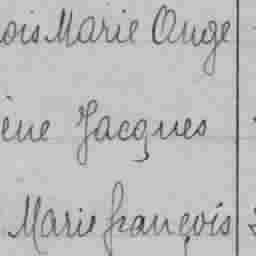 ois Marie Ange
ène Jacques
Marie françois